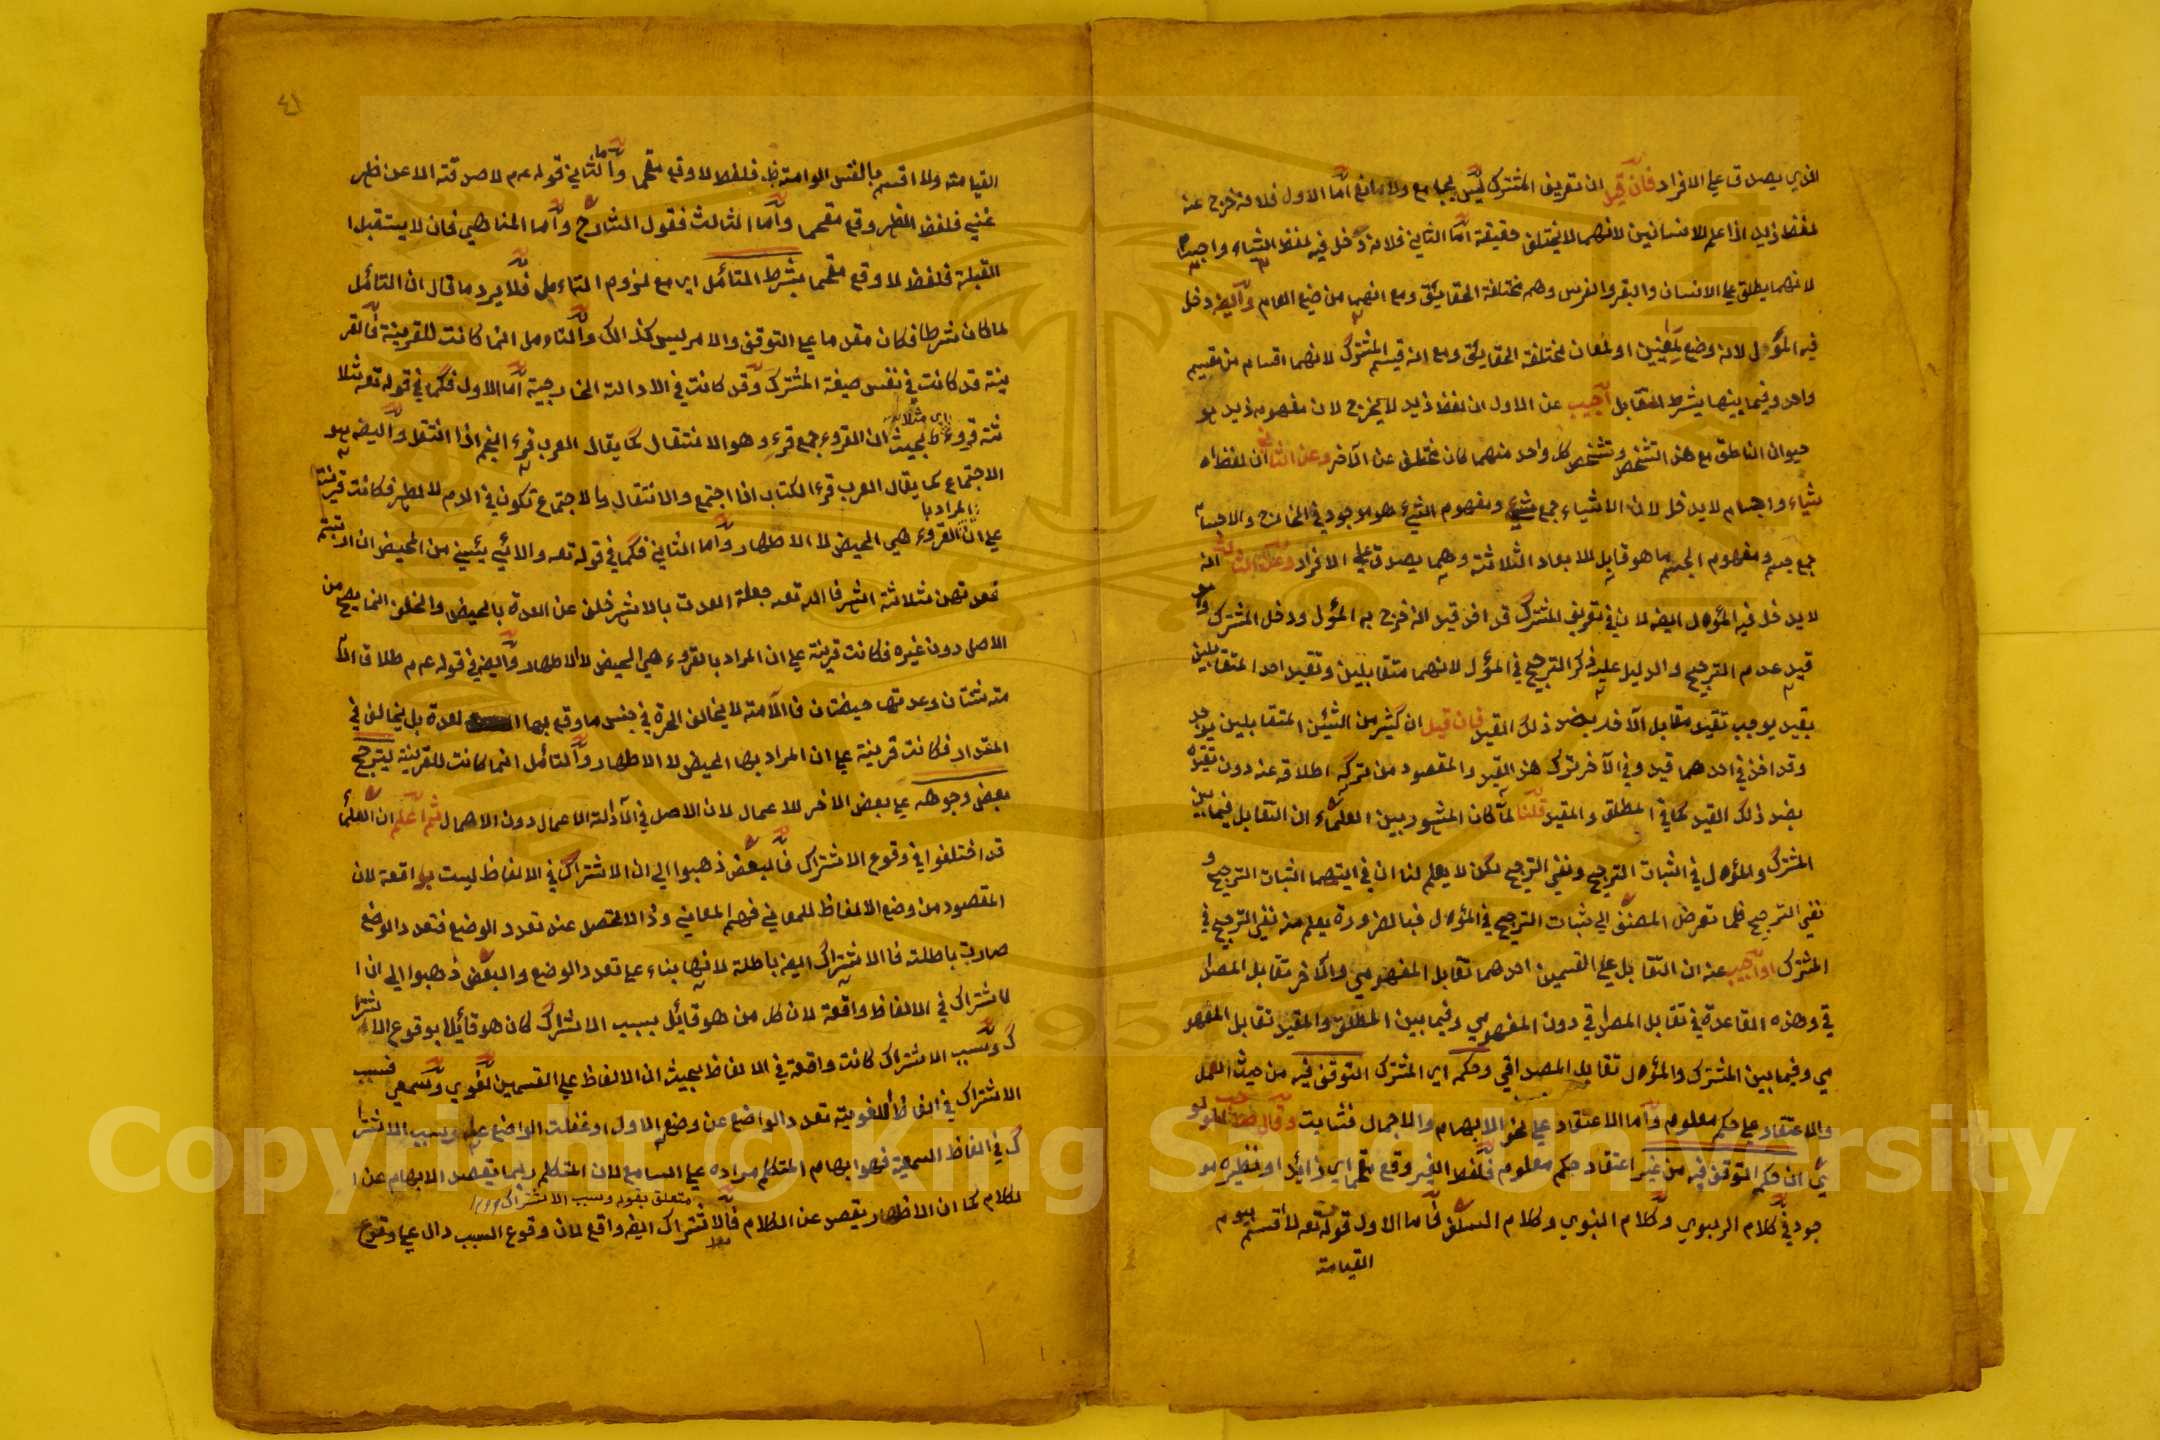 الذي يصدق علي الافراد فان قيل ان تعريف المشترك ليس بجامع ولا مانع اما الاول فلانه خرج عنه
لفظ زيد اذا علم للانسانين لانهما لا يختلف حقيقة اما الثاني فلانه دخل فيه لفظ الشياء واجسام
لانهما يطلق علي الانسان والبقر والفرس وهم مختلفة الحقايق ومع انهما من صيغ العام وايضا دخل
فيه المؤول لانه وضع لمعنيين او لمعان مختلفة الحقايق ومع انه قسيم المشترك لانهما اقسام من تقسيم
واحد وفيما بينها يشرط التقابل اجيب عن الاول ان لفظ زيد لا يخرج لان مفهوم زيد هو
حيوان الناطق مع هذا التشخص وتشخص كل واحد منهما كان مختلف عن الآخر وعن الثاني ان لفظ ا
شياء واجسام لا يدخل لان الاشياء جمع شيء ومفهوم الشيء هو موجود في الخارج والاجسام
جمع جسم ومفهوم الجسم ما هو قابل للابعاد الثلاثة وهما يصدق علي الافراد وعن الثالث انه
لا يدخل فيه المؤول ايضا لان في تعريف المشترك قد اخذ قيد انه خرج به المؤول ودخل المشترك وهو
قيد عدم الترجيح والدليل عليه ذكر الترجيح في المؤول لانهما متقابلين وتقيد احد المتقابلين
بقيد يوجب تقيد مقابل الآخر بضد ذلك القيد فان قيل ان كثير من الشيئين المتقابلين يوجد
وقد اخذ في احدهما قيد وفي الآخر ترك هذا القيد والمقصود من تركه اطلاقه عنه دون تقيده
بضد ذلك القيد كما في المطلق والمقيد قلنا لما كان المشهور بين العلماء ان التقابل فيما بين
المشترك والمؤول في اثبات الترجيح ونفي الترجيح لكن لا يعلم لنا ان في ايتهما اثبات الترجيح و
نفي الترجيح فلما تعرض المصنف الي ثبات الترجيح في المؤول فبالضرورة يعلم منه نفي الترجيح في
المشترك او اجيب عنه ان التقابل علي القسمين احدهما تقابل المفهومي والآخر تقابل المصدا
قي وهذه القاعدة في تقابل المصداقي دون المفهومي وفيما بين المطلق والمقيد تقابل المفهو
مي وفيما بين المشترك والمؤول تقابل المصداقي وحكمه اي المشترك التوقف فيه من حيث العمل
والاعتقاد علي حكم معلوم واما الاعتقاد علي نحو الابهام والاجمال فثابت وقال
ان حكم التوقف فيه من غير اعتقاد حكم معلوم فلفظ الغير وقع مقحما اي زائدا ونظيره مو
جود في كلام الربوي وكلام النبوي وكلام السلف فاما الاول قوله تعه لا اقسم بيوم
القيامة
٤١
القيامة ولا اقسم بالنفس اللوامة فلفظ لا وقع مقحما واما الثاني قوله عم لا صدقة الا عن ظهر
غني فلفظ الظهر وقع مقحما واما الثالث فقول الشارح واما المناهي فان لا يستقبل ا
القبلة فلفظ لا وقع مقحما بشرط التامل اي مع لزوم التاءمل فلا يرد ما قال ان التأمل
لما كان شرطا فكان مقدما علي التوقف والامر ليس كذالك والتاءمل انما كانت للقرينة فالقر
ينة قد كانت في نفس صيغة المشترك وقد كانت في الادالة الخارجية اما الاول فكما في قوله تعه ثلا
ثة قروء بحيث ان القروء جمع قرء وهو الانتقال كما يقال العرب قرء النجم اذا انتقل وايضا هو
الاجتماع كما يقال العرب قرء الكتاب اذا اجتمع والانتقال والاجتماع تكون في الدم لا الطهر فكانت قرينتا
المراد با
علي ان القروء هي الحيض لا الاطهار واما الثاني فكما في قوله تعه والائي يئسن من المحيض ان ارتبتم
فعدتهن ثلاثة اشهر فالله تعه جعلة العدت بالاشهر خلف عن العدة بالحيض والخلف انما يصح من
الاصل دون غيره فكانت قرينة علي ان المراد بالقروء هي الحيض لا الاطهار وايضا في قوله عم طلاق الا
مة ثنتان وعدتها حيضتان فالآمة لا يخالف الحرة في جنس ما وقع بها العدة بل يخالف في
المقدار فكانت قرينة علي ان المراد بها الحيض لا الاطهار والتأمل انما كانت للقرينة ليترجح
بعض وجوهه علي بعض الاخر للاعمال لان الاصل في الآدلة الاعمال دون الاهمال ثم اعلم ان العلماء
قد اختلفوا في وقوع الاشتراك فالبعض ذهبوا الي ان الاشتراك في الالفاظ ليست بواقعة لان
المقصود من وضع الالفاظ للمعاني فهم المعاني وذا لا تحصل عند تعدد الوضع فتعدد الوضع
صارت باطلة فالاشتراك ايضا باطلة لانها بناء علي تعدد الوضع والبعض ذهبوا الي ان ا
لاشتراك في الالفاظ واقعة لان كل من هو قائل بسبب الاشتراك كان هو قائلا بوقوع الاشترا
ك وسبب الاشتراك كانت واقعة في الالفاظ بحيث ان الالفاظ علي القسمين لغوي وسمعي فسبب
الاشتراك في الفاظ اللغوية تعدد الواضع عن وضع الاول او غفلت الواضع عنه وسبب الاشترا
ك في الفاظ السمعية فهو ابهام المتكلم مراده علي السامع لان المتكلم ربما يقصد الابهام عن ا
متعلق بقوله وسبب الاشتراك
لكلام كما ان الاظهار يقصد عن الكلام فالاشتراك ايضا واقع لان وقوع السبب دال علي وقوع
Copyright © King Saud University
1957